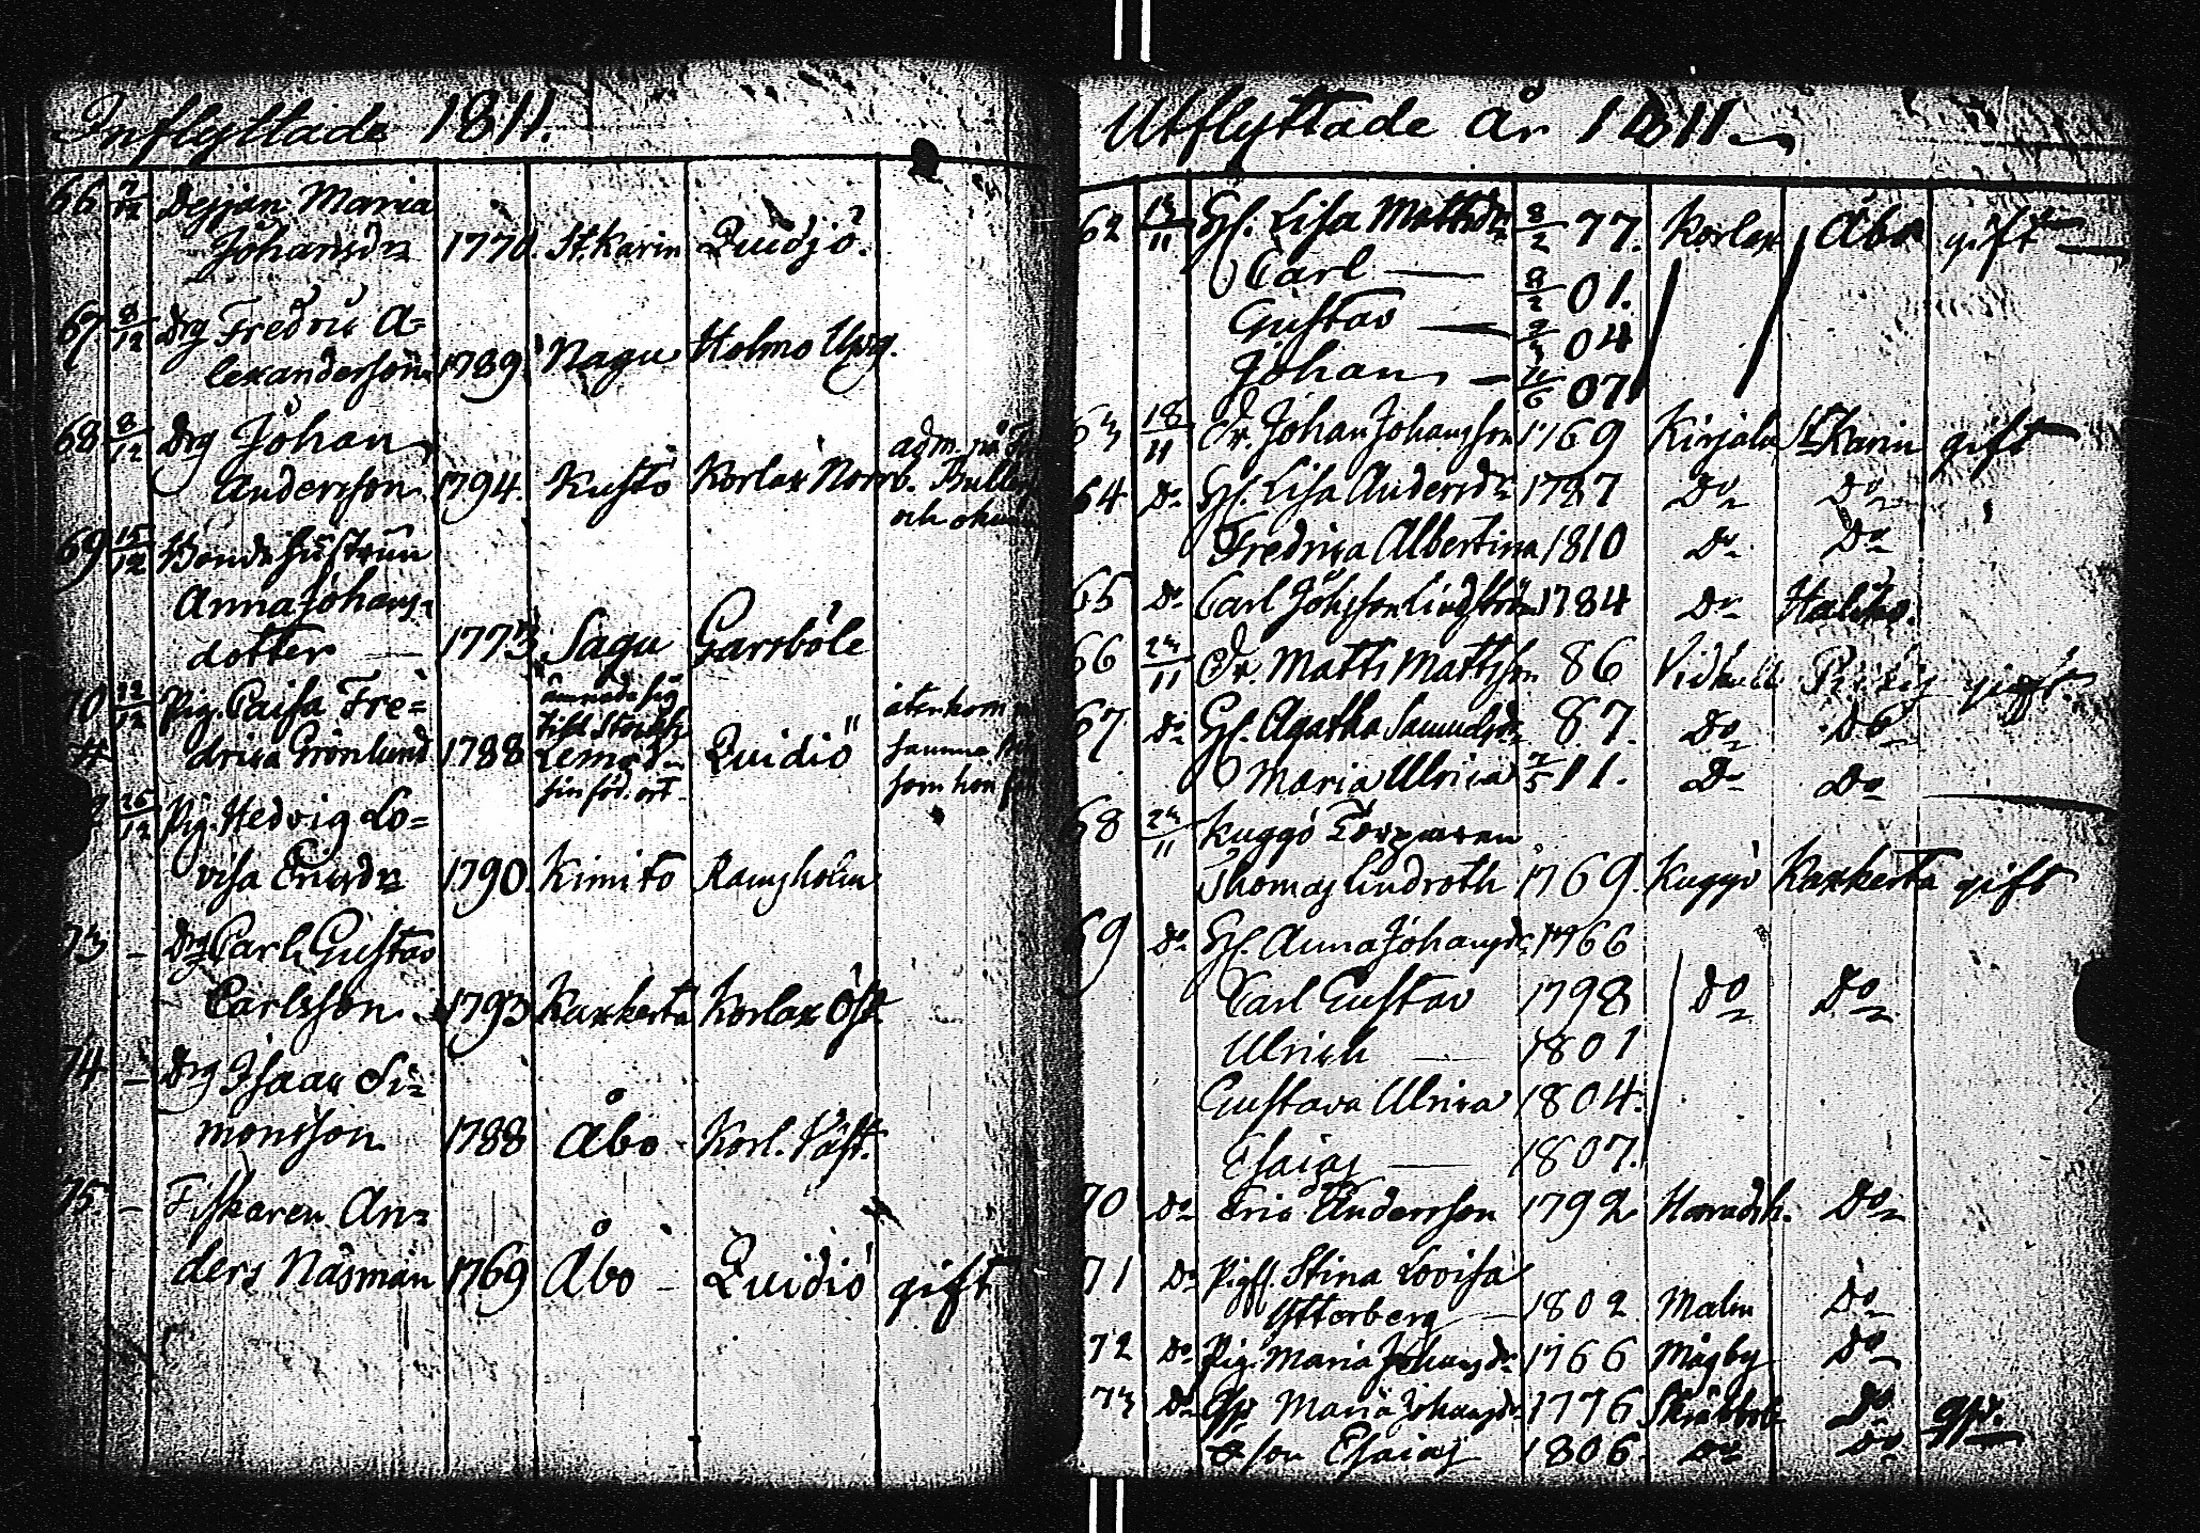 Inflyttade 1811.
66 7/12 Dejjan Maria
Johansdr 1770. St. Karin Quidjö.
67 8/12 Drg Fredric A=
lexandersson 1789. Nagu Holmo Upg.
68 8/12 Drg Johan
Andersson 1794. Kustö Korlax Norrb.
adm. på
och
69 15/12 Bondehustrun
Anna Johans=
dotter 1773 Sagu Garsböle
70 22/12 Pig. Caisa Fre=
drica Grönlund 1788
ämnade sig
till Stockh.
Lemld
sin föd. ort
Quidiö
återkom
samma
som hon
26/12 Pig. Hedvig Lo=
visa Ericsdr 1790. Kimito Ramsholm
73 – Drg Carl Gustav
Carlsson 1793 Kaxkerta Korlax Öst.
74 – Drg Isaac Si=
monsson 1788 Åbo Korl. Väst.
75 – Fiskaren An=
ders Näsman 1769 Åbo – Quidiö gift
Utflyttade år 1811.
62 13/11 Hu. Lisa Mattsdr 8/2 77. Korlax Åbo gift
Carl — 8/2 01.
Gustav — 04
Johan — 11/6 07
63 18/11 Dr. Johan Johansson 1769 Kirjala St Karin gift
64 Do Hu. Lisa Andersdr 1787 Do Do
Fredrica Albertina 1810 Do Do
65 Do Carl Johsson Lindström 1784 Do
66 23/11 Dr. Matts Mattsson 86 gift.
67 Do Hu. Agatha Samuelsdr 87. Do Do
Maria Ulrica 7/5 11. Do Do
68 23/11 Kuggö Torparen
Thomas Lindroth 1769. Kuggö Kaxkerta gift
69 Do Hu. Anna Johansdr 1766
Carl Gustav 1798 Do Do
Ulrich — 1801
Gustava Ulrica 1804.
Esaias — 1807.
70 Do Eric Andersson 1792 Do
71 Do Pigfl. Stina Lovisa
Ytterberg — 1802 Malm Do
72 Do Pig. Maria Johansdr 1766 Mågby Do
73 Do Maria Johansdr 1776 Do
& son Esaias 1806. Do Do